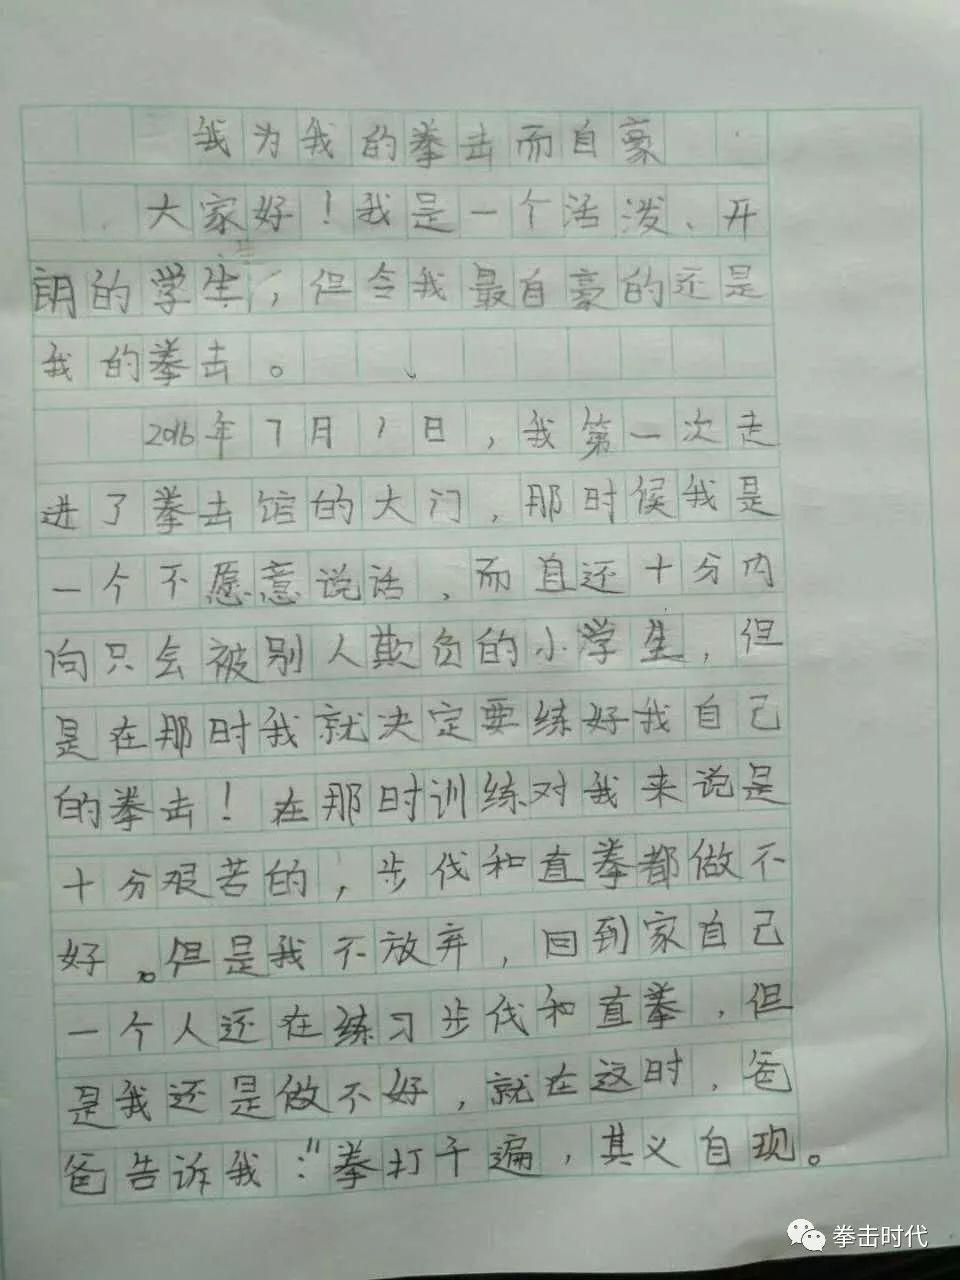 我为我的拳击而自豪
大家好！我是一个活泼、开
朗的学生，但令我最自豪的还是
我的拳击。
2016年7月1日，我第一次走
进了拳击馆的大门，那时候我是
一个不愿意说话，而且还十分内
向只会被别人欺负的小学生，但
是在那时我就决定要练好我自己
的拳击！在那时训练对我来说是
十分艰苦的，步伐和直拳都做不
好。但是我不放弃，回到家自己
一个人还在练习步伐和直拳，但
是我还是做不好，就在这时，爸
爸告诉我："拳打千遍，其义自现。
拳击时代